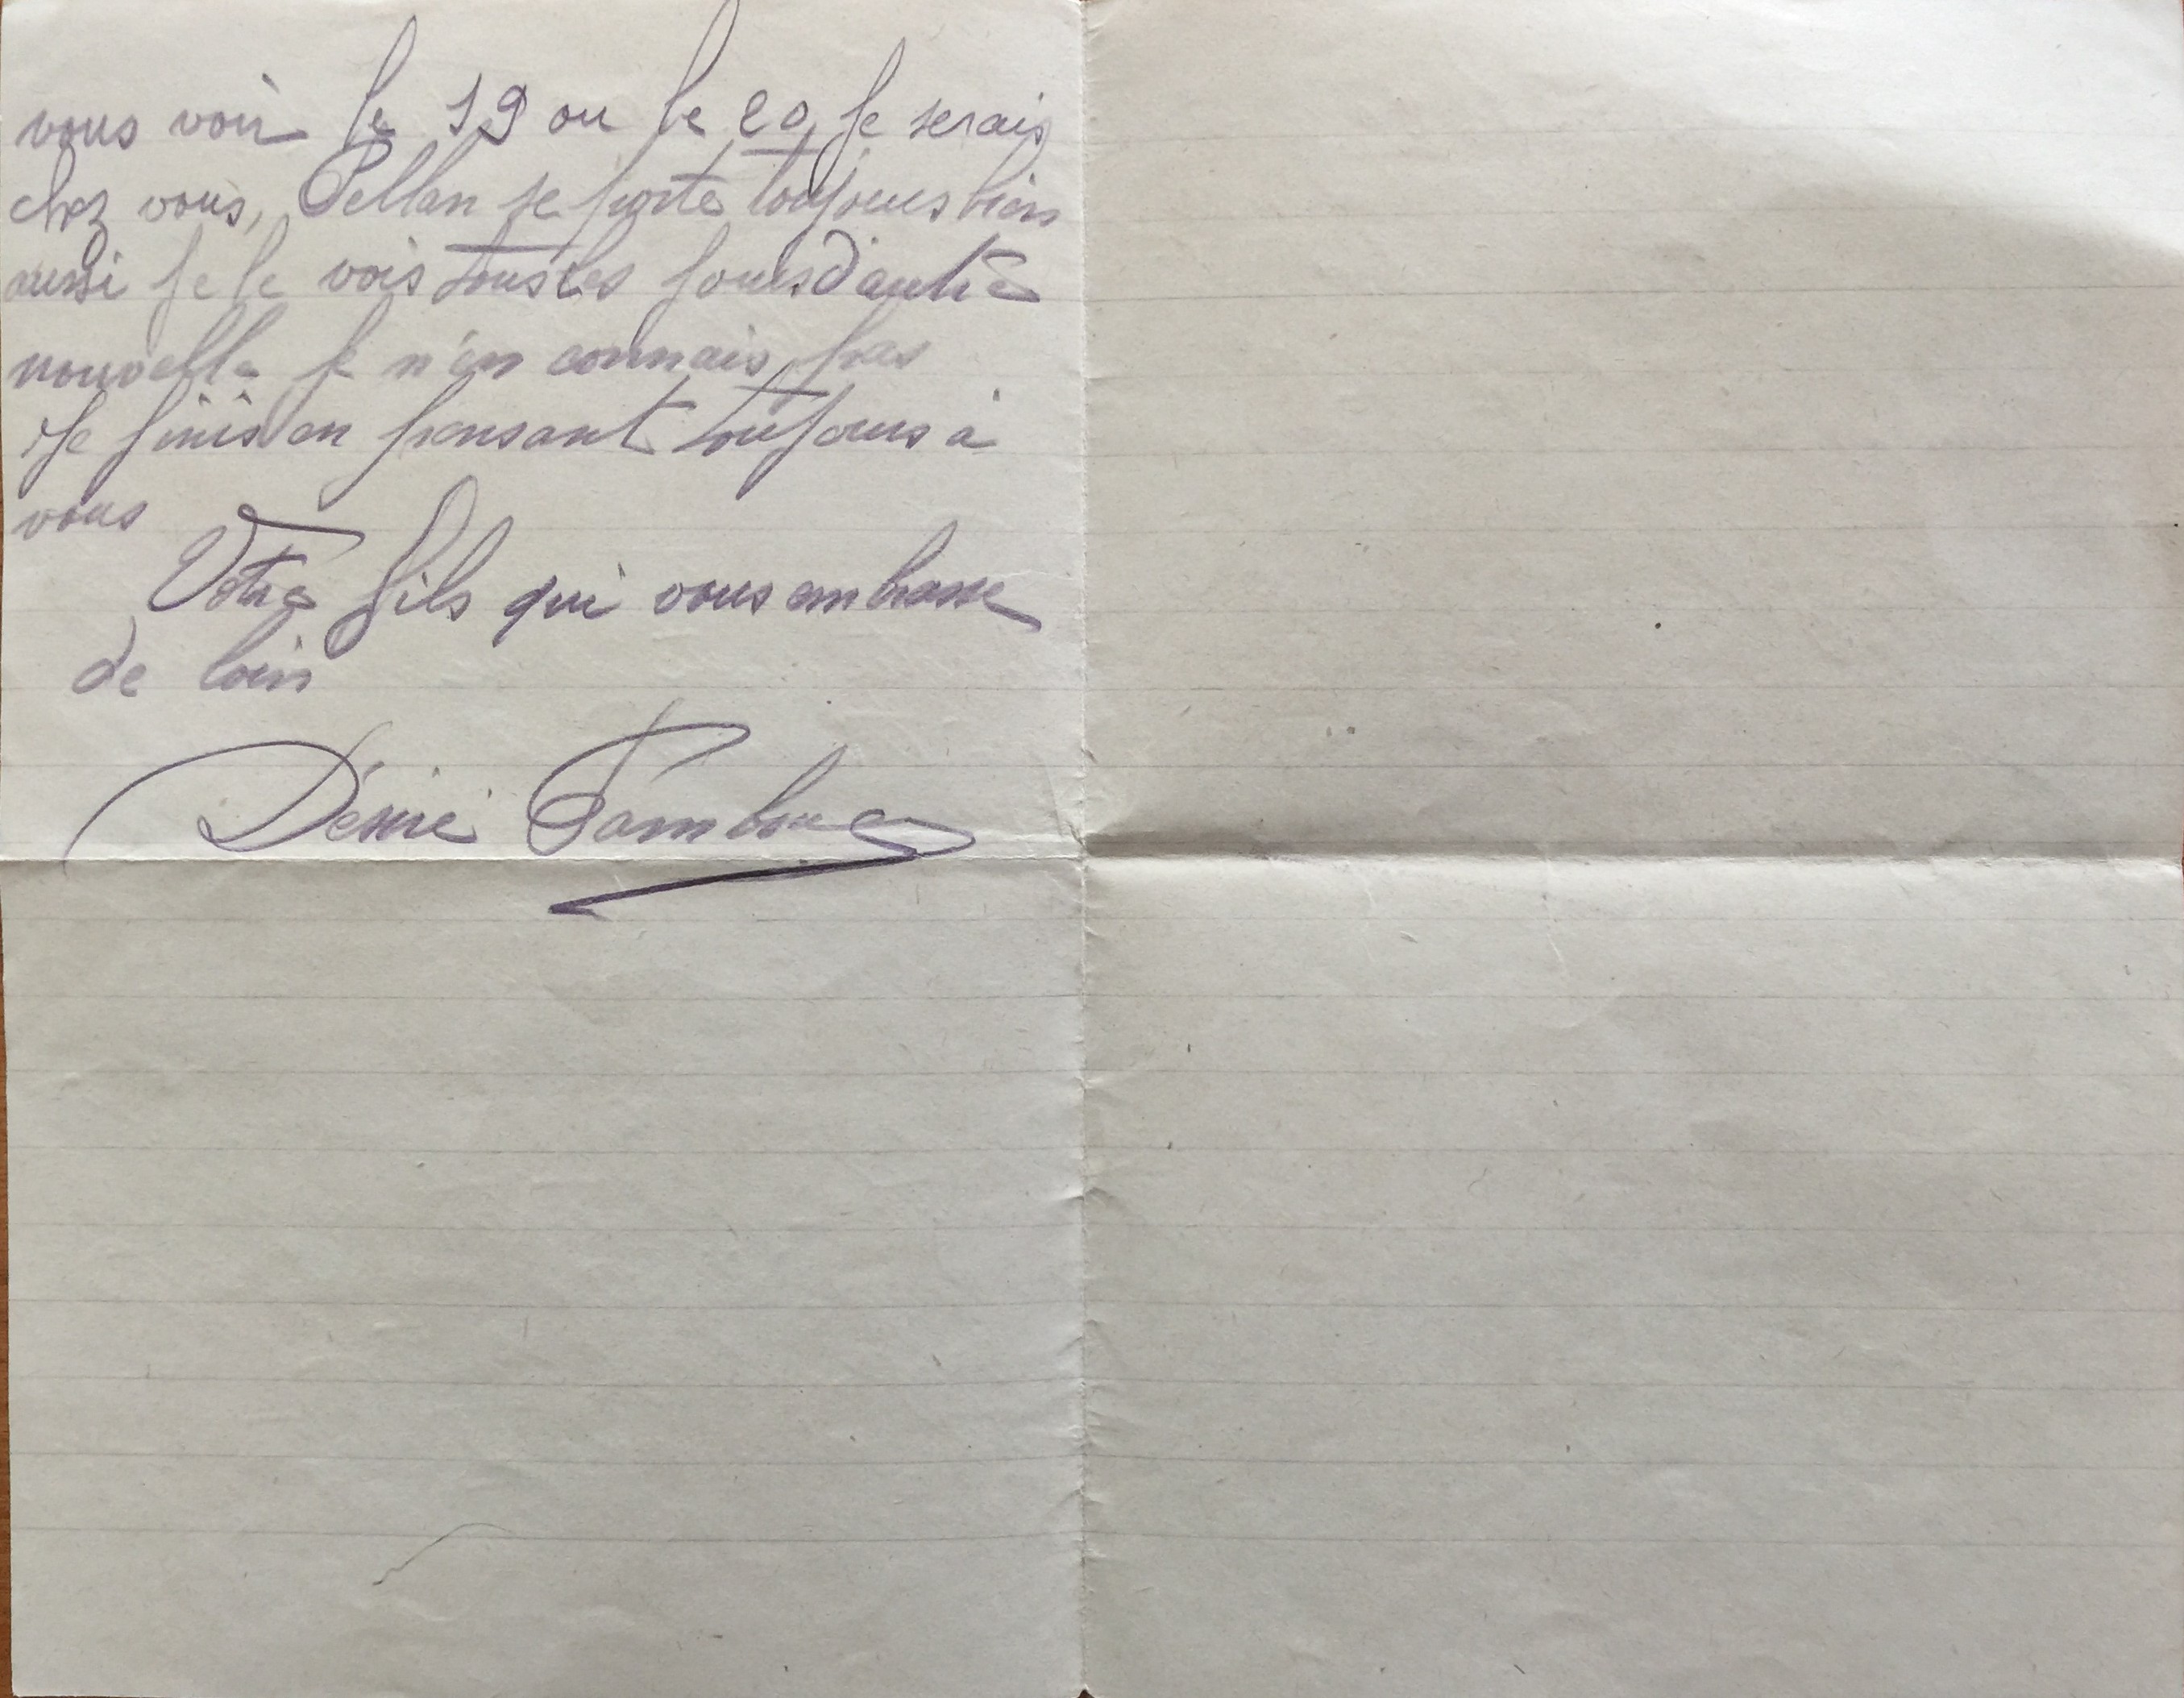 vous voir le 19 ou le 20, je serais
chez vous, Pellan se porte toujours bien
aussi je le vois tous les jours d'autre
nouvelle je n'en connais pas
Je finis en pensant toujours à
vous
Votre fils qui vous embrasse
de loin
Désiré